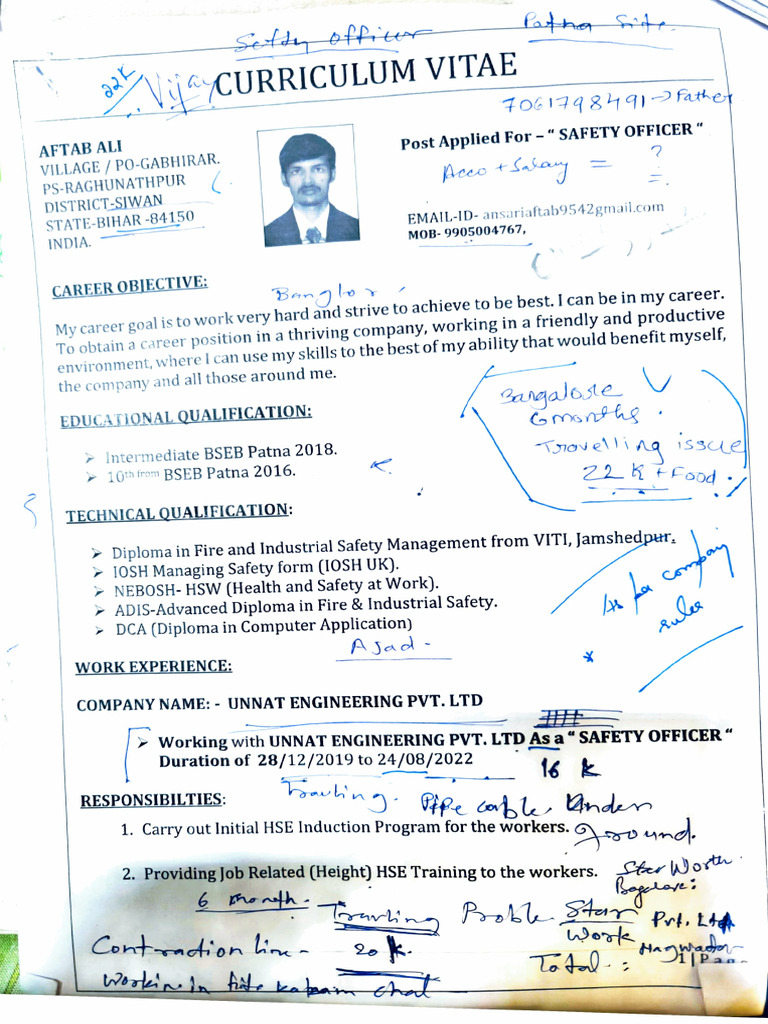 Safty officer Patna Site.
22K
Vijay
CURRICULUM VITAE
7061798491 → Father
AFTAB ALI
VILLAGE / PO-GABHIRAR.
PS-RAGHUNATHPUR
DISTRICT-SIWAN
STATE-BIHAR -84150
INDIA.
Post Applied For – “ SAFETY OFFICER “
Acco + Salary = ?
EMAIL-ID- ansariaftab9542gmail.com
MOB- 9905004767,
CAREER OBJECTIVE:
Banglor
My career goal is to work very hard and strive to achieve to be best. I can be in my career.
To obtain a career position in a thriving company, working in a friendly and productive
environment, where I can use my skills to the best of my ability that would benefit myself,
the company and all those around me.
Bangalore
6 months.
Travelling issue
22 K + Food.
EDUCATIONAL QUALIFICATION:
➢ Intermediate BSEB Patna 2018.
➢ 10th from BSEB Patna 2016.
TECHNICAL QUALIFICATION:
➢ Diploma in Fire and Industrial Safety Management from VITI, Jamshedpur.
➢ IOSH Managing Safety form (IOSH UK).
➢ NEBOSH- HSW (Health and Safety at Work).
➢ ADIS-Advanced Diploma in Fire & Industrial Safety.
➢ DCA (Diploma in Computer Application)
As per company
rules
Ajad -
WORK EXPERIENCE:
COMPANY NAME: - UNNAT ENGINEERING PVT. LTD
➢ Working with UNNAT ENGINEERING PVT. LTD As a “ SAFETY OFFICER “
Duration of 28/12/2019 to 24/08/2022
16 K
RESPONSIBILTIES:
Pipe cable Under
ground.
1. Carry out Initial HSE Induction Program for the workers.
2. Providing Job Related (Height) HSE Training to the workers.
Star Worth
6 month.
Proble Star
Work
Pvt. Ltd
20 K.
Total - :
1 | Pag